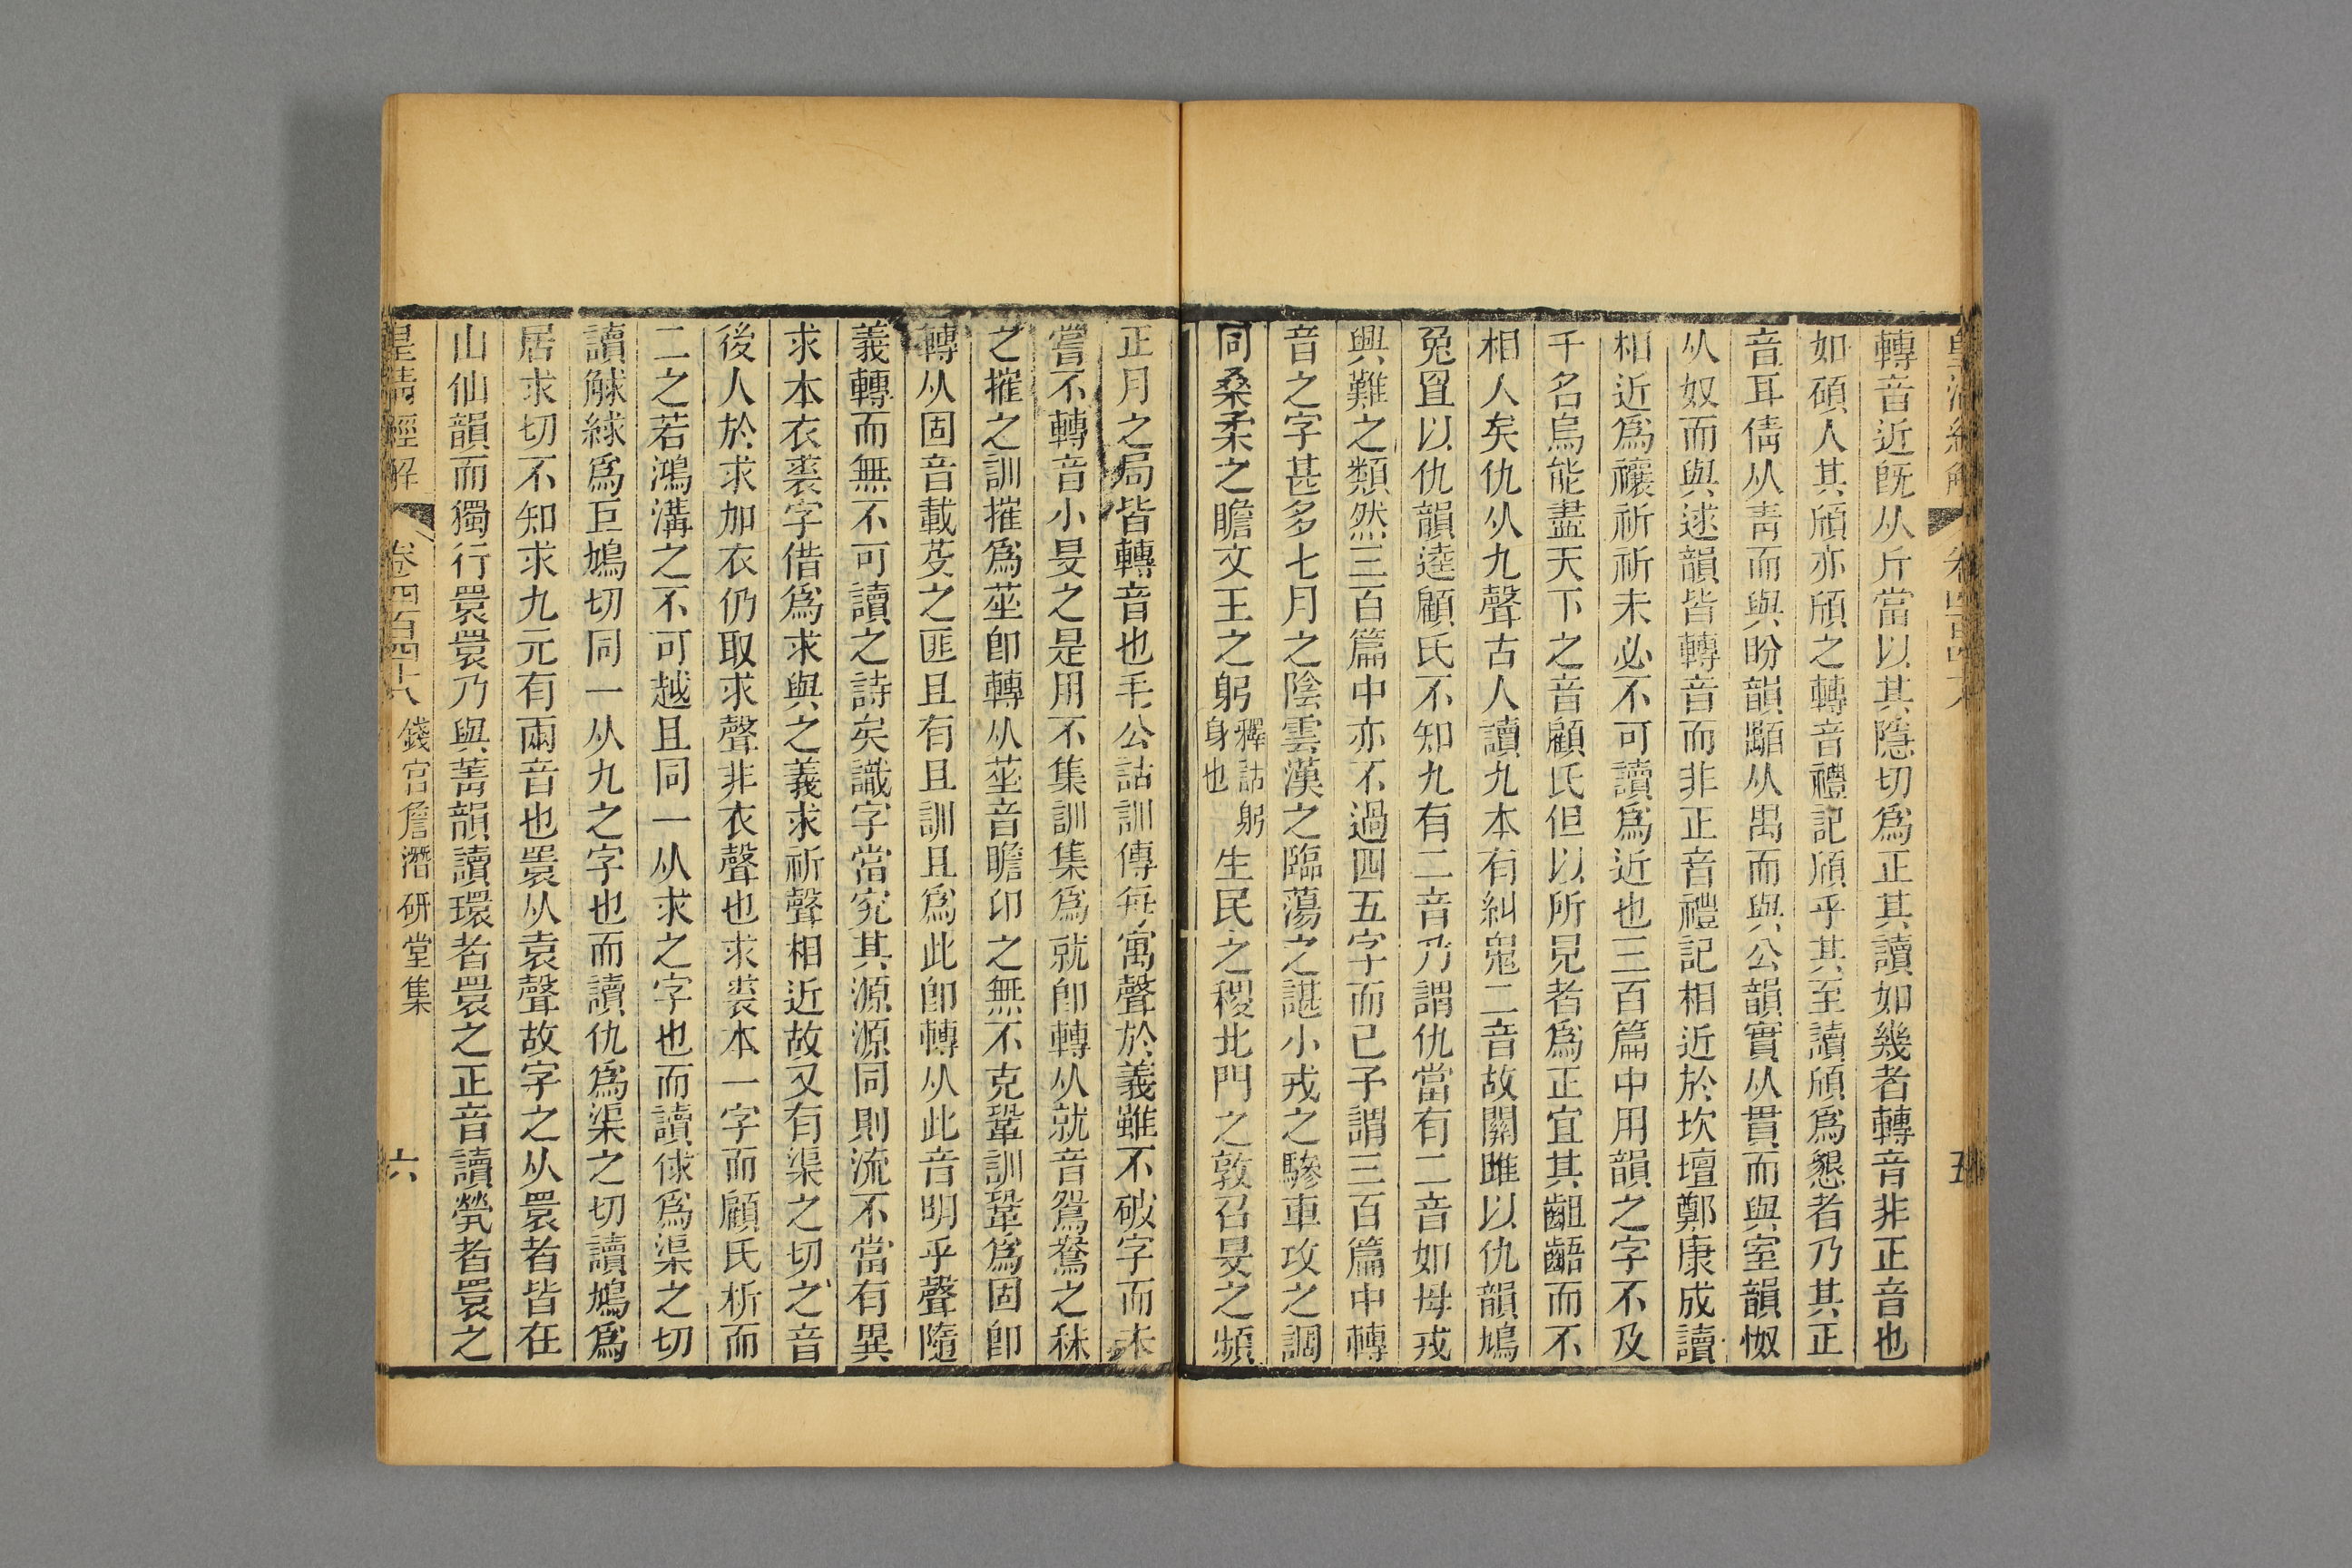 轉音近既从斤當以其隱切爲正其讀如幾者轉音非正音也
如碩人其頎亦頎之轉音禮記頎乎其至讀頎爲懇者乃其正
音耳倩从靑而與盼韻顒从禺而與公韻實从貫而與室韻怓
从奴而與逑韻皆轉音而非正音禮記相近於坎壇鄭康成讀
相近爲禳祈祈未必不可讀爲近也三百篇中用韻之字不及
千名烏能盡天下之音顧氏但以所見者爲正宜其齟齬而不
相人矣仇从九聲古人讀九本有糾鬼二音故關雎以仇韻鳩
兔罝以仇韻逵顧氏不知九有二音乃謂仇當有二音如母戎
興難之類然三百篇中亦不過四五字而已予謂三百篇中轉
音之字甚多七月之陰雲漢之臨蕩之諶小戎之驂車攻之調
同桑柔之瞻文王之躬釋詁躬身也生民之稷北門之敦召旻之頻
正月之局皆轉音也毛公詁訓傳每寓聲於義雖不破字而未
嘗不轉音小旻之是用不集訓集爲就卽轉从就音鴛鴦之秣
之摧之訓摧爲莝卽轉从莝音瞻卬之無不克鞏訓鞏爲固卽
轉从固音載芟之匪且有且訓且爲此卽轉从此音明乎聲隨
義轉而無不可讀之詩矣識字當究其源源同則流不當有異
求本衣裘字借爲求與之義求祈聲相近故又有渠之切之音
後人於求加衣仍取求聲非衣聲也求裘本一字而顧氏析而
二之若鴻溝之不可越且同一从求之字也而讀俅爲渠之切
讀觩絿爲巨鳩切同一从九之字也而讀仇爲渠之切讀鳩爲
居求切不知求九元有兩音也睘从袁聲故字之从睘者皆在
山仙韻而獨行睘睘乃與菁韻讀環者睘之正音讀煢者睘之
皇淸經解 卷四百四十八 錢宮詹潛研堂集 六